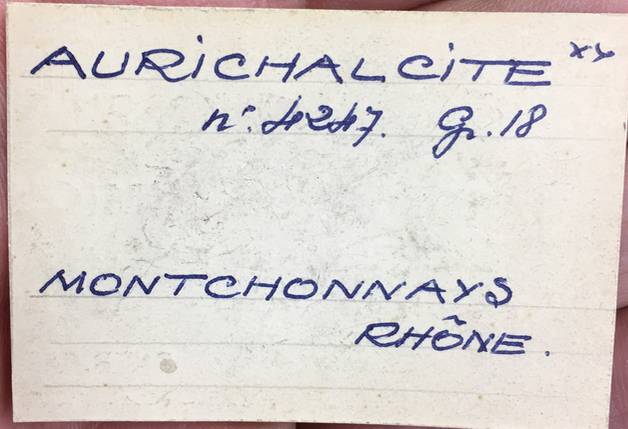 AURICHALCITE xx
n°. 4247. Gr. 18
MONTCHONNAYS
RHÔNE.